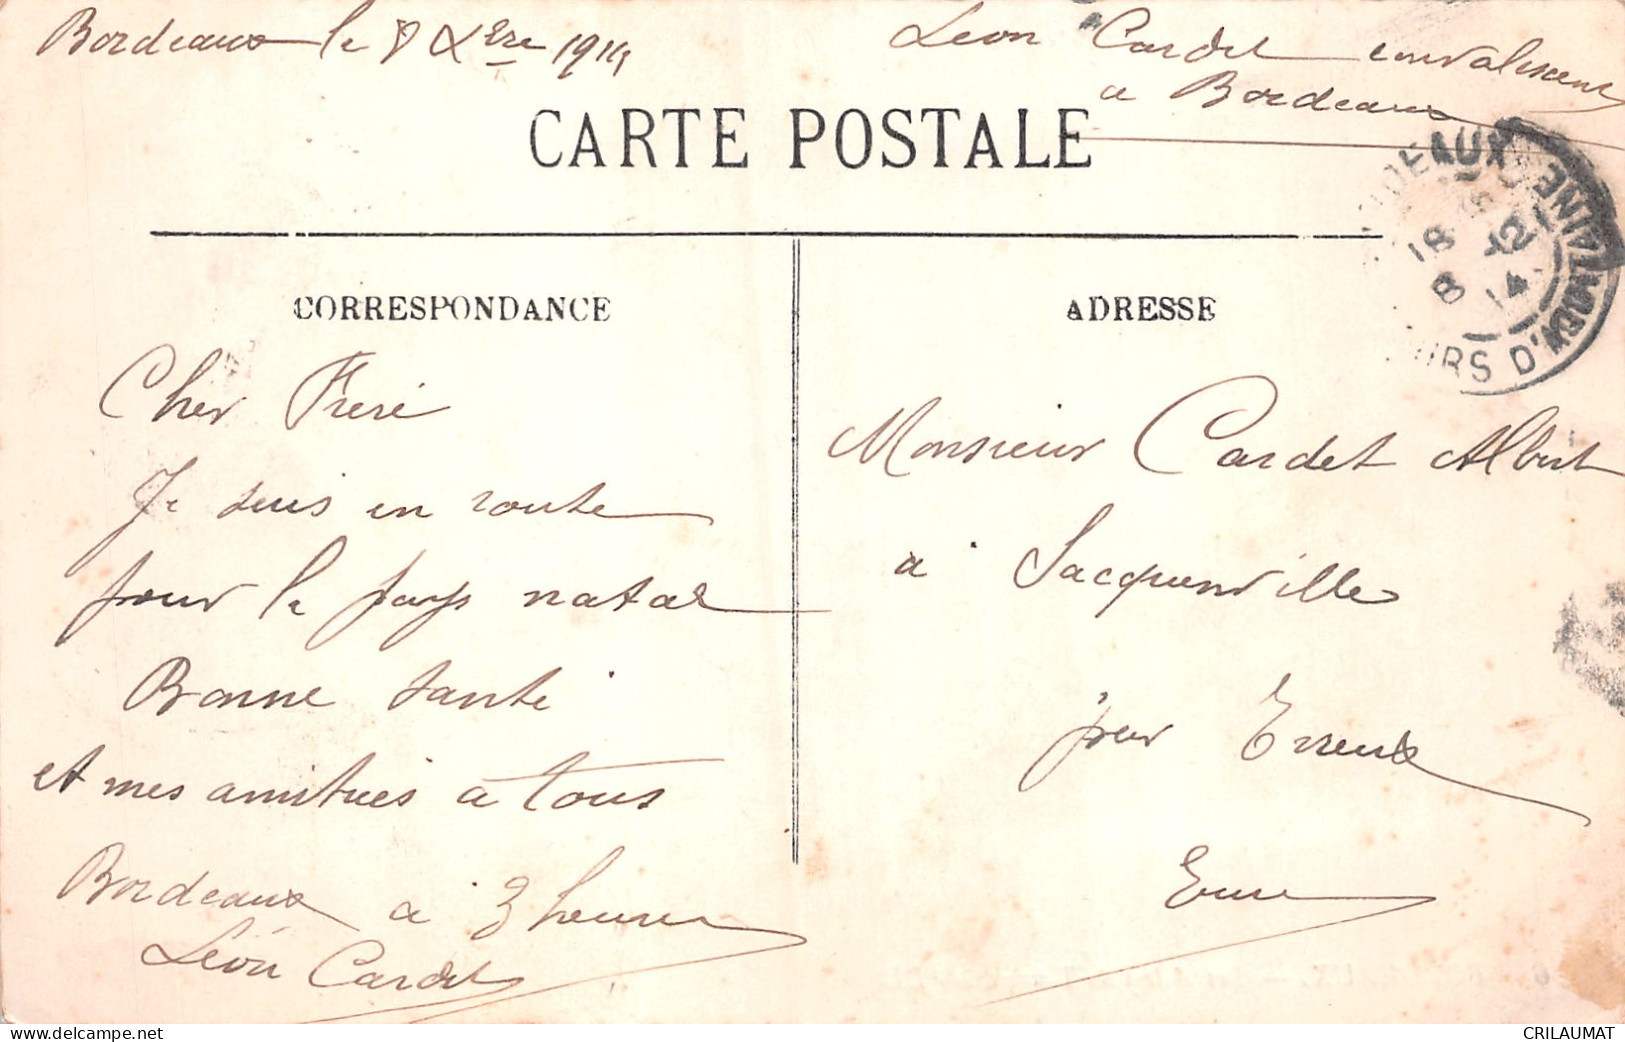 Bordeaux le 8 Xbre 1914
Léon Cardet convalescent
a Bordeaux
CARTE POSTALE
BORDEAUX
18
8 -12
14
COURS D'
CORRESPONDANCE
ADRESSE
Cher Freré
Je suis en route
pour le pays natal
Bonne santé
et mes amitiés a tous
Bordeaux a 3 heures
Léon Cardet
Monsieur Cardet Albert
a Sacquenville
par Evreux
Eure
CRILAUMAT